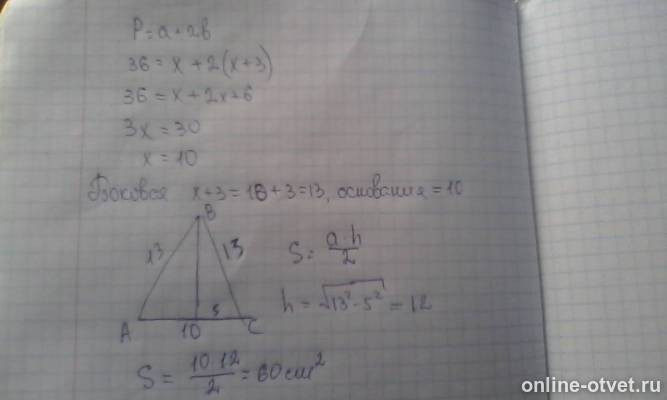 P = a + 2b
36 = x + 2(x+3)
36 = x + 2x + 6
3x = 30
x = 10
Боковая x+3 = 10 + 3 = 13, основания = 10
B
13
13
A
10
5
C
S = a·h/2
h = √13² - 5² = 12
S = 10·12/2 = 60 cm²
online-otvet.ru